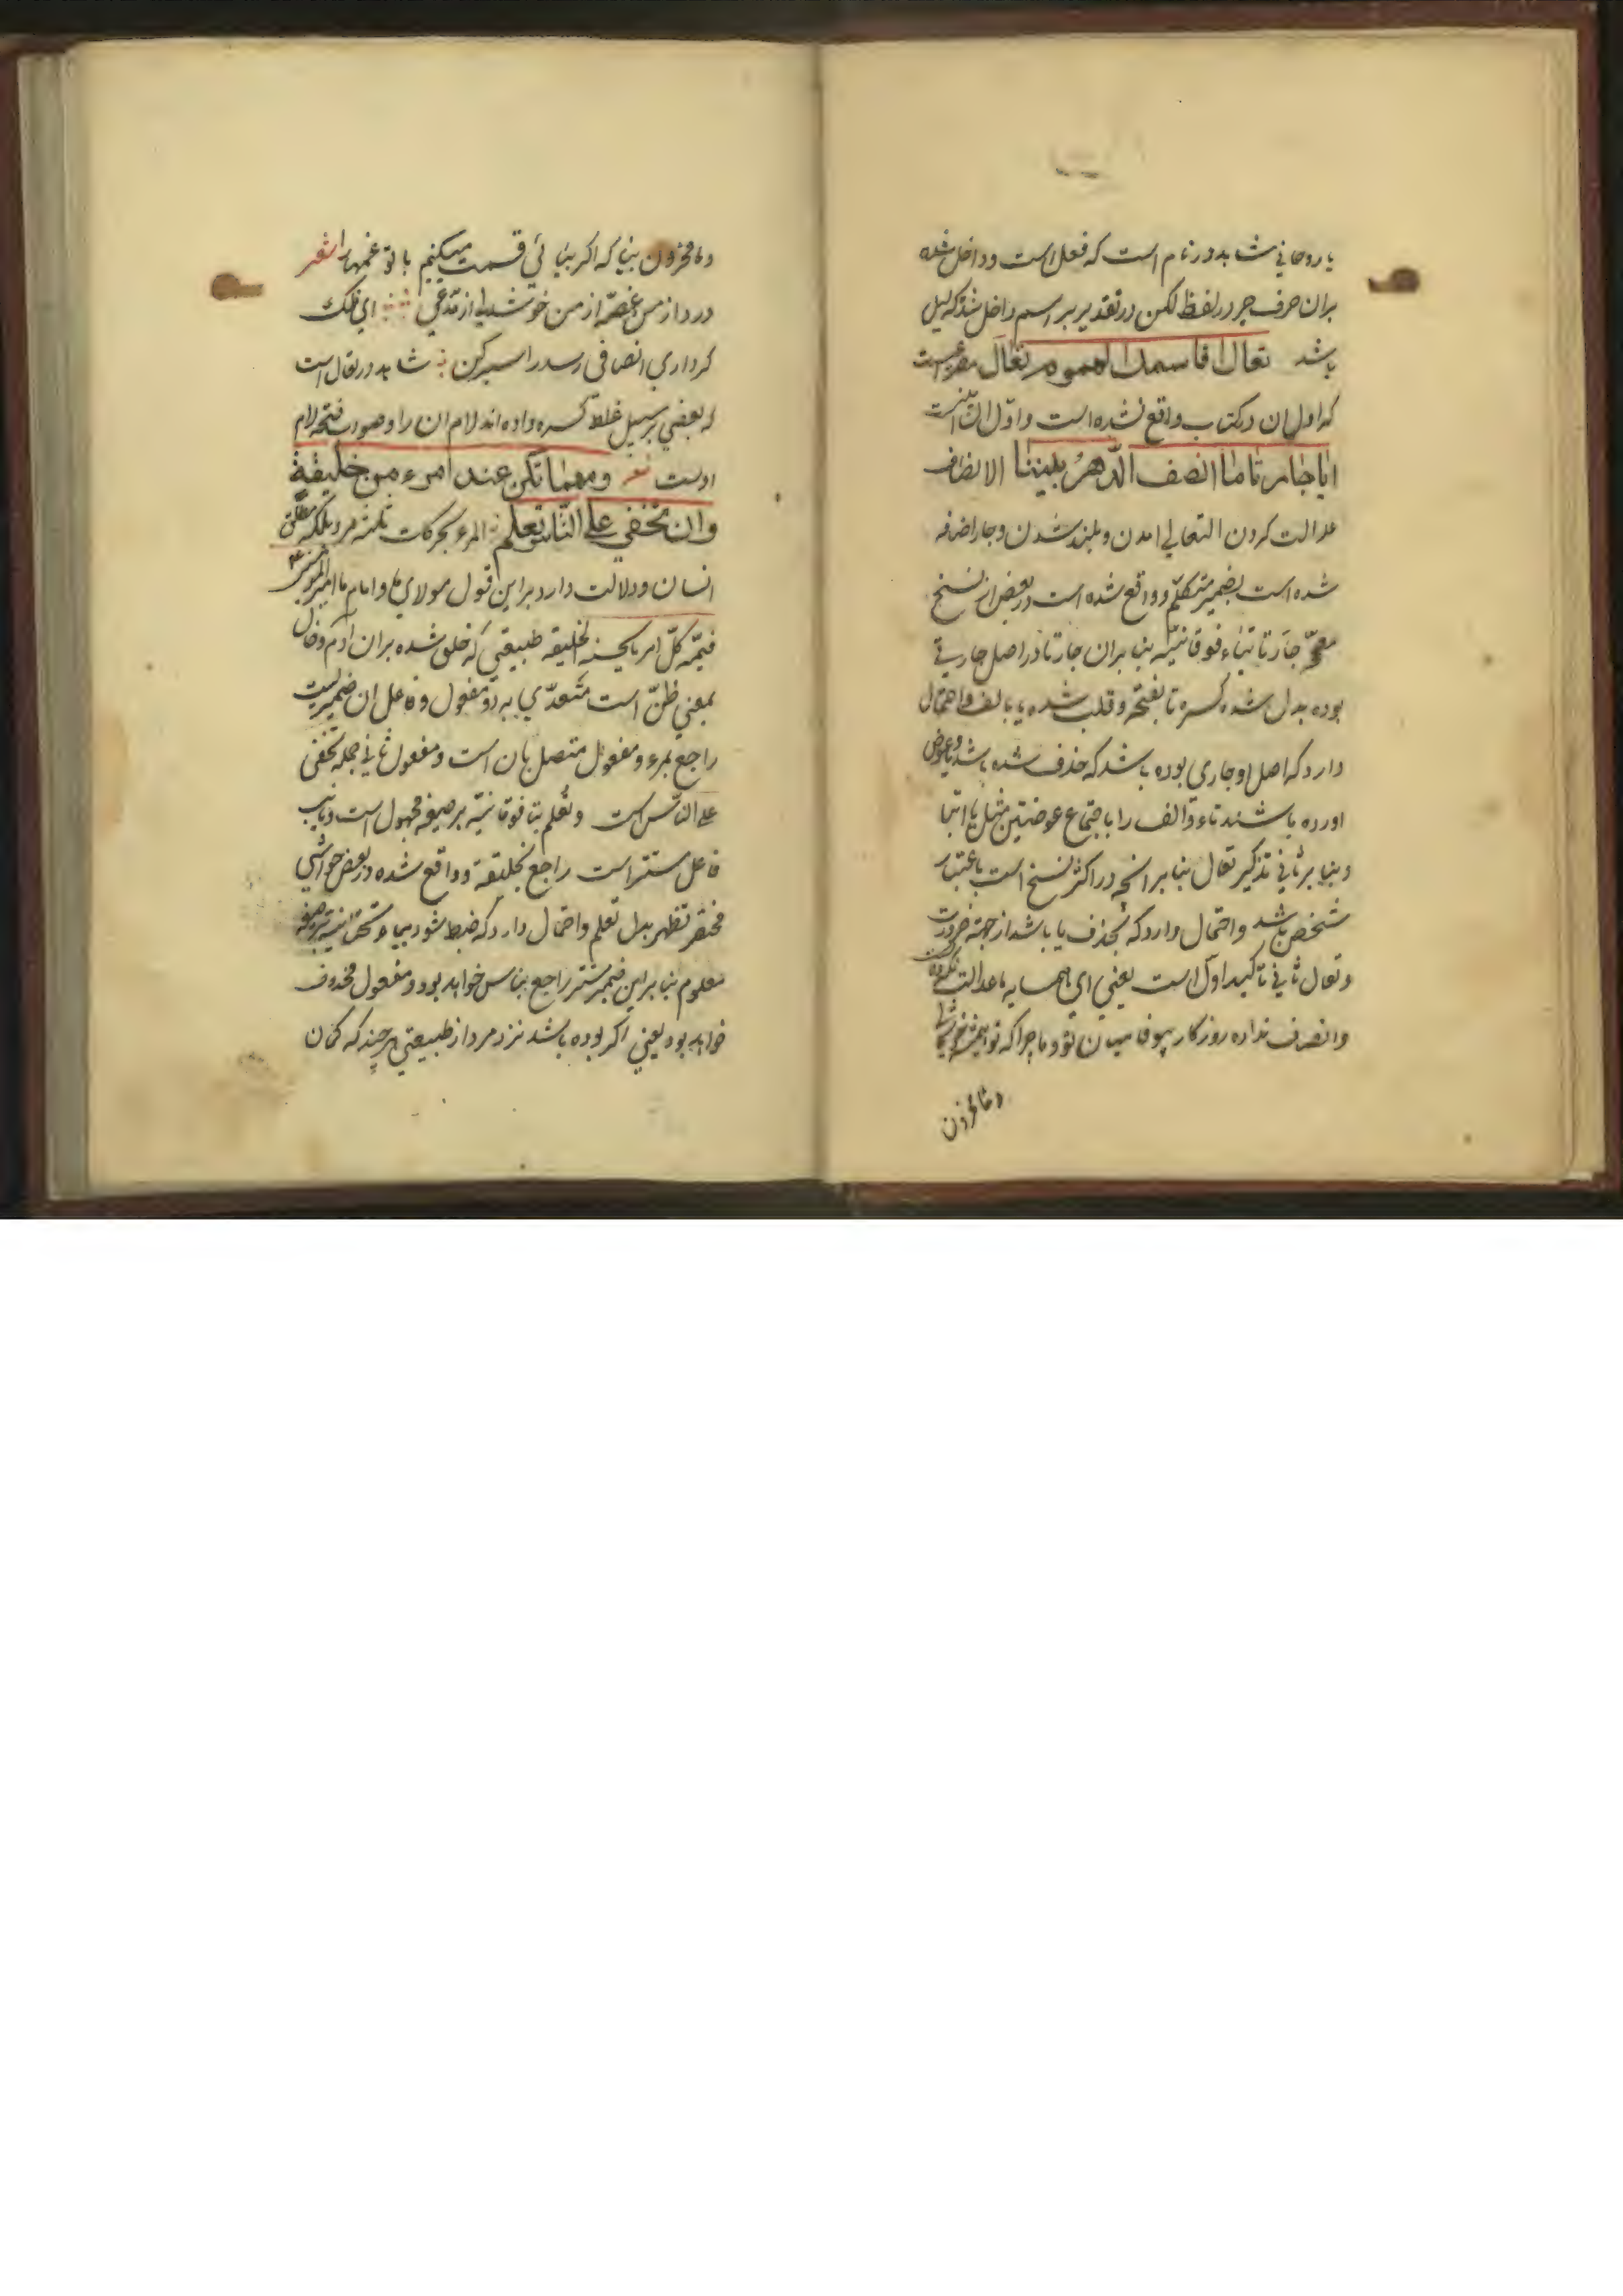 یا روحانی شاهد در نام است که فعل است و داخل شده
بران حرف جر در لفظ لکن در تقدیر بر اسم داخل شد که لیل
باشد تعال اقاسمك الهموم تعال مصرعیست
که اول ان در کتاب واقع نشده است و اول ان اینست
ایا جارتا ما انصف الدهر بیننا الانصاف
عدالت کردن التعالی امدن و بلند شدن و جار اضافه
شده است بضمیر متکلم و واقع شده است در بعض از نسخ
جارتا بتاء فوقانیه بنا بران جارتا در اصل جارتی
بوده بدل شده کسره تا بفتحه و قلب شده یا بالف و احتمال
دارد که اصل او جاری بوده باشد که حذف شده باشد یا و عوض
اورده باشند تاء و الف را باجتماع عوضتین مثل یا ابتا
و بنا بر ثانی تذکیر تعال بنا بر انچه در اکثر نسخ است باعتبار
شخص باشد و احتمال دارد که بحذف یا باشد از جهة ضرورت
و تعال ثانی تاکید اول است یعنی ای همسایه ما عدالت نکرده
و انصاف نداده روزکار بیوفا میان تو و ما چرا که تو همیشه خوشحالی
و ما محزون
و ما محزون بیا که اکر بیائی قسمت میکنیم با تو غمها را شعر
درد از من غصه از من خوشدلی از مدعی ای فلک
کر داری انصافی رسد را سیر کن شاهد در تعال است
که بعضی بر سبیل غلط کسره داده اند لام ان را و صواب فتحه لام
اوست شعر ومهما تكن عند امرء من خليقة
وان تخفی علی الناس تعلم المرء بحرکات ثلثه مرد بلکه مطلق
انسان و دلالت دارد بر این قول مولای ما و امام ما امیر المؤمنین ع
قیمة کل امرء ما یحسنه الخلیقه طبیعتی که خلق شده بران ادم و خال
بمعنی ظن است متعدی به دو مفعول و فاعل ان ضمیریست
راجع بمرء و مفعول متصل بان است و مفعول ثانی جمله تخفی
علی الناس است و تعلم بتا فوقانیه بر صیغه مجهول است و نایب
فاعل مستتر است راجع بخلیقة و واقع شده در بعض حواشی
مختصر تظهر بدل تعلم و احتمال دارد که ضبط شود بیاء تحتانیه بر صیغه
معلوم بنا بر این ضمیر مستتر راجع بناس خواهد بود و مفعول محذوف
خواهد بود یعنی اکر بوده باشد نزد مرد از طبیعتی هر چند که کمان